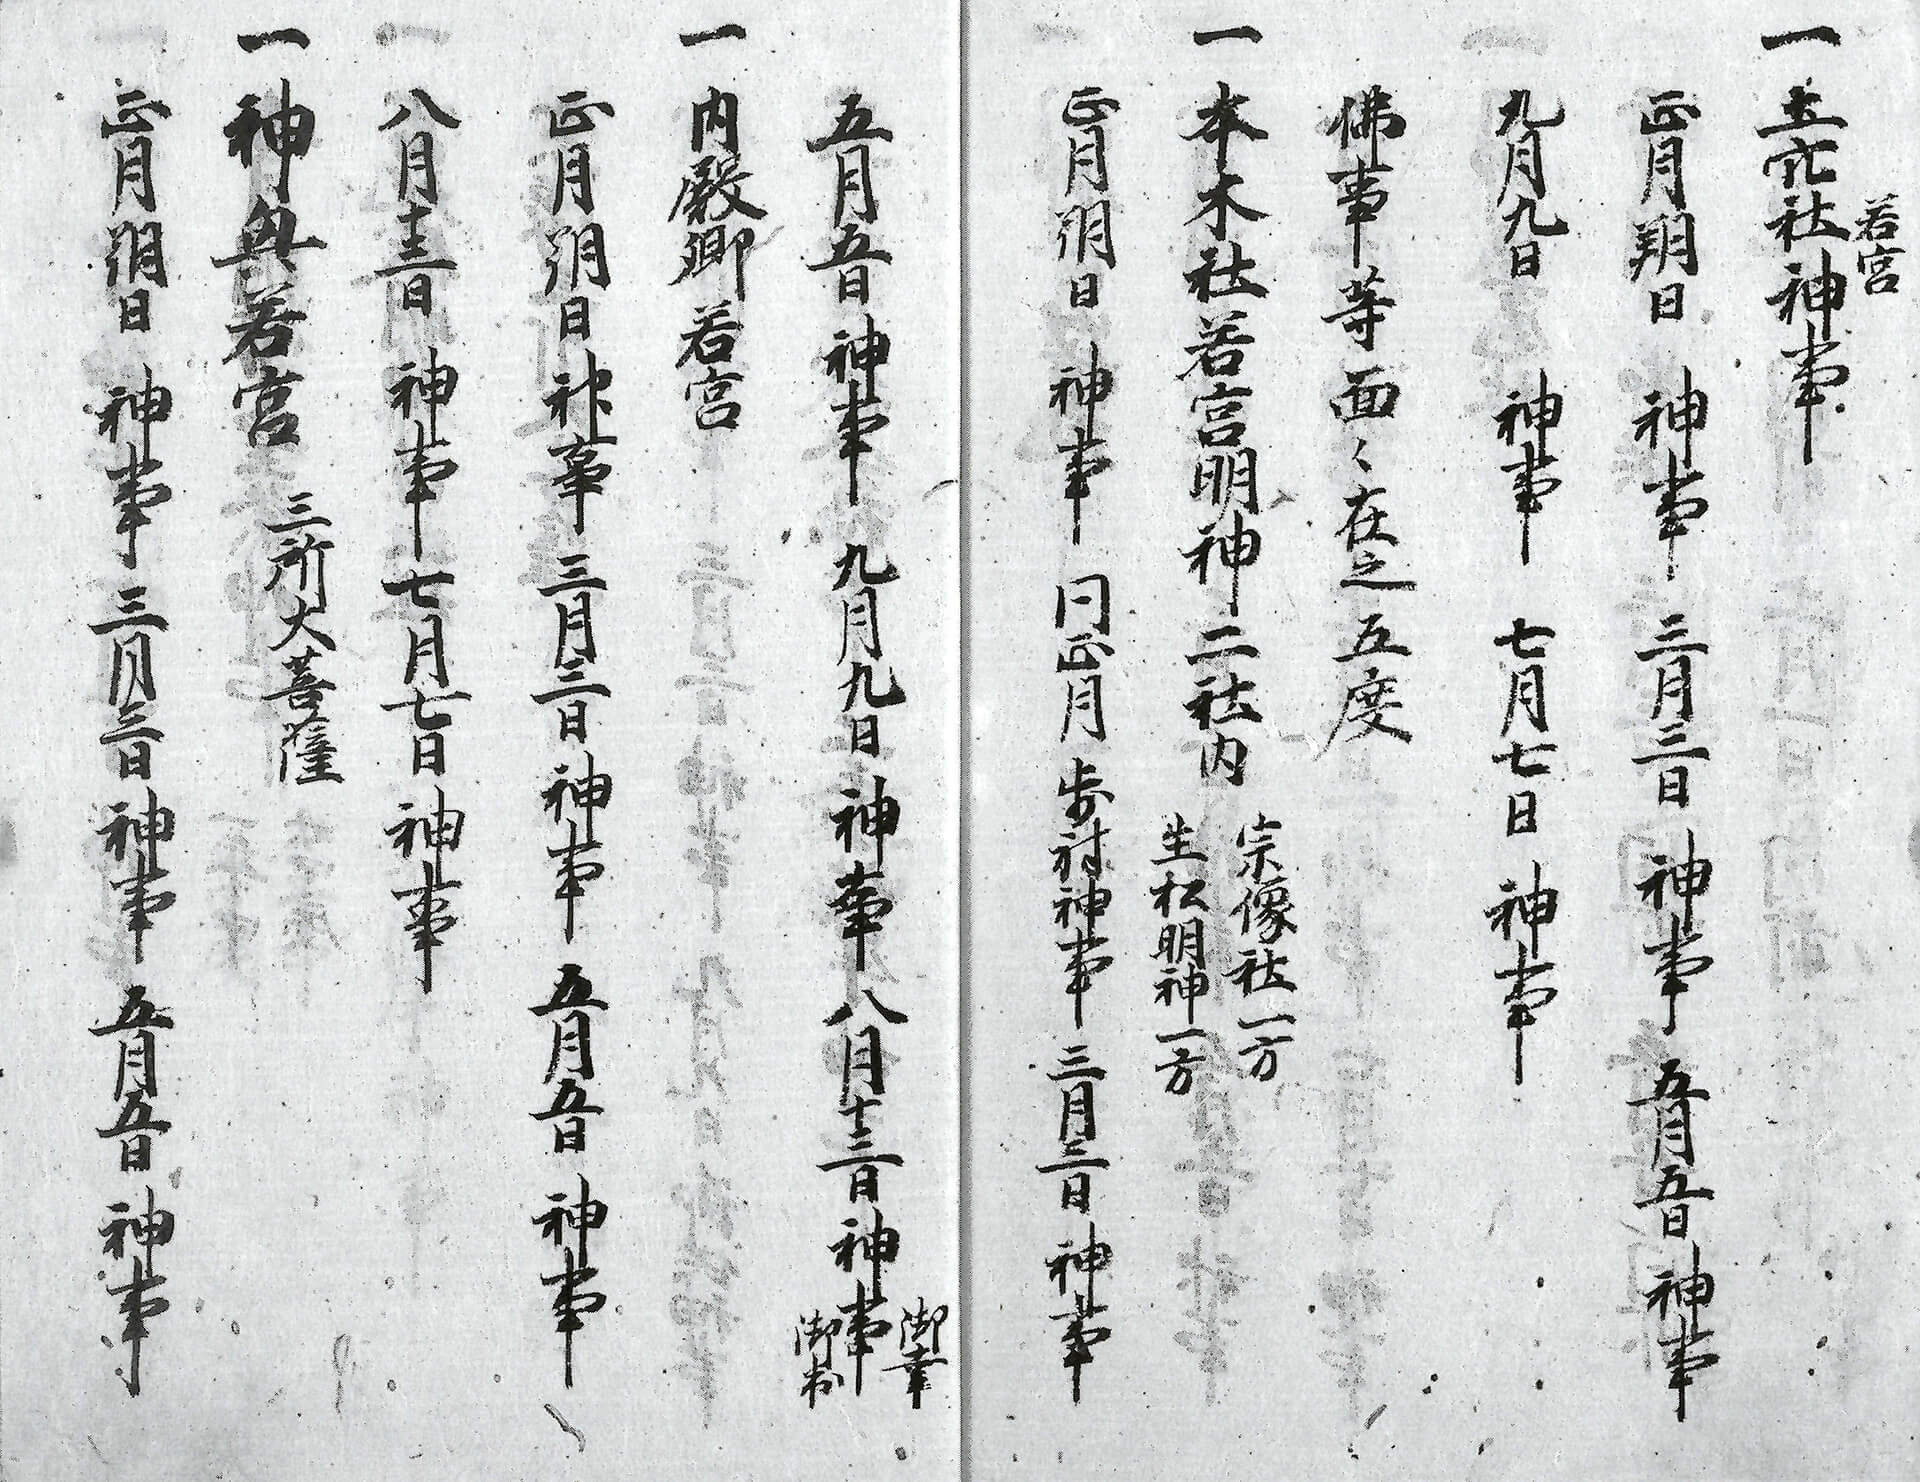 一土穴社神事
若宮
正月朔日　神事　三月三日　神事　五月五日　神事
九月九日　神事　七月七日　神事
佛事等面々在之五度
一本木社若宮明神二社内
宗像社一方
生松明神一方
正月朔日　神事　同正月　歩射神事　三月三日　神事
五月五日　神事　九月九日　神事　八月十三日　神事
御幸
一内殿郷若宮
正月朔日　神事　三月三日　神事　五月五日　神事
八月十三日　神事　七月七日　神事
一神興若宮
三所大菩薩
正月朔日　神事　三月三日　神事　五月五日　神事